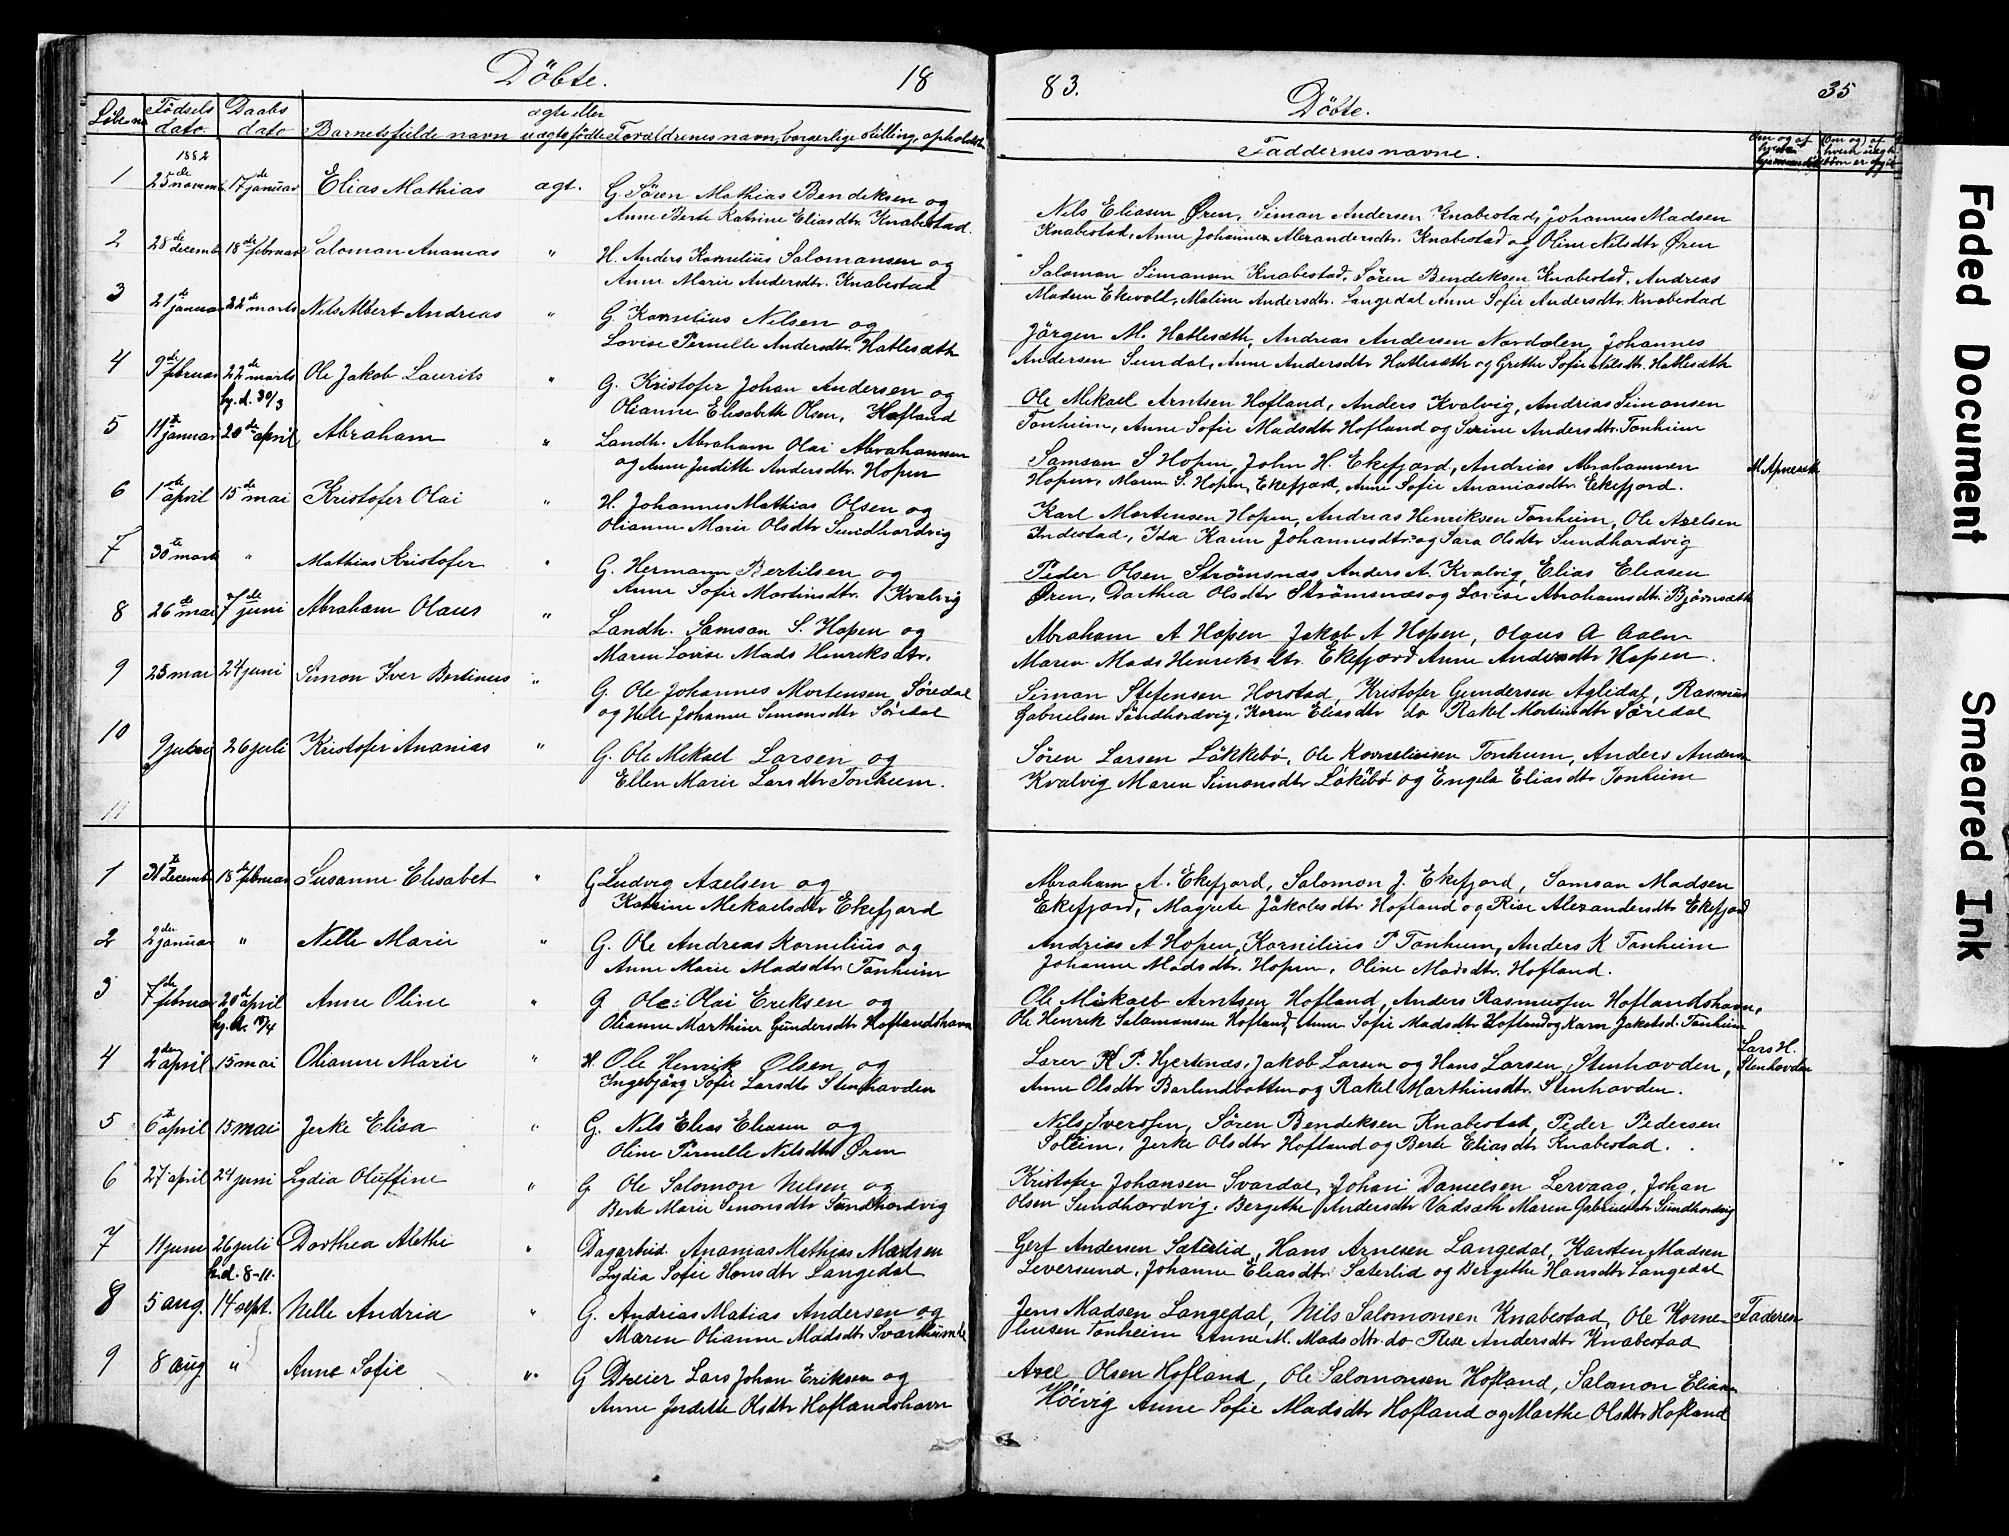 Döbte. 18
Löbe no Fødsels dato Daabs dato Barnets fulde navn ægte eller uægte fødte Forældrenes navn, borgerlige stilling, opholdst.
1 1882 25de novemb. 17de januar Elias Mathias ægt. G. Sören Mathias Bendiksen og
Anne Berte Katrine Eliasdtr. Knabestad.
2 28de decemb 18de februar Saloman Ananias " H. Anders Kornelius Salomansen og
Anne Marie Andersdtr. Knabestad
3 21de januar 22de marts Nils Albert Andreas " G. Kornelius Nilsen og
Lovise Pernille Andersdtr. Hatlesæth
4 9de februar 22de marts Ole Jakob Laurits " G. Kristofer Johan Andersen og
hj. d. 30/3 Olianne Elisabeth Olsen, Hofland
5 11te januar 20de april Abraham " Landh. Abraham Olai Abrahamsen
og Anne Juditte Andersdtr. Hopen
6 1ste april 15de mai Kristofer Olai " H. Johannes Mathias Olsen og
Olianne Marie Olsdtr Sundhordvig
7 30te marts " Mathias Kristofer " G. Hermann Bertilsen og
Anne Sofie Martinsdtr. Kvalvig
8 26de mai 7de juni Abraham Olaus " Landh. Samson S. Hopen og
Maren Lovise Mads Henriksdtr.
9 25 mai 24 juni Simon Iver Bertinus " G. Ole Johannes Mortensen Söredal
og Hele Johanne Simonsdtr Söredal
10 9 juli 26 juli Kristofer Ananias " G. Ole Mekael Larsen og
Ellen Marie Larsdtr Tonheim.
11
1 31te decemb 18de februar Susanne Elisabet " G Ludvig Axelsen og
Katrine Mekaelsdtr Ekefjord
2 2den januar " Nelle Marie " G. Ole Andreas Kornelius og
Anne Marie Madsdtr Tonheim
3 7de februar 20de april Anne Oline " G Ole Olai Eriksen og
hj. d. 15/4 Olianne Marthine Gundersdtr Hoflandshavn
4 2den april 15 mai Olianne Marie " H. Ole Henrik Olsen og
Ingebjörg Sofie Larsdtr Stenhovden
5 6te april 15 mai Jerke Elisa " G. Nils Elias Eliasen og
Oline Pernelle Nilsdtr Øren
6 27 april 24 juni Lydia Oluffine " G Ole Salomon Nilsen og
Berte Marie Simonsdtr Sundhordvig
7 11 juni 26 juli Dorthea Alethe " Dagarbeid. Ananias Mathias Madsen
h.d. 8-11. Lydia Sofie Hansdtr Langedal
8 5 aug. 14 sept. Nelle Andria " G. Andrias Matias Andersen og
Maren Olianne Madsdtr Svarthumle
9 8 aug " Anne Sofie " G Dreier Lars Johan Eriksen og
Anne Jerdette Olsdtr Hoflandshavn
83. 35
Döbte.
Faddernes navne.
Nils Eliasen Øren, Simon Andersen Knabestad, Johannes Madsen
Knabestad, Anne Johanne Alexandersdtr. Knabestad og Oline Nilsdtr Øren
Saloman Simansen Knabestad, Sören Bendiksen Knabestad, Andreas
Madsen Ekevoll, Maline Andersdtr. Langedal Anne Sofie Andersdtr Knabestad
Jörgen M. Hatlesæth, Andreas Andersen Nordalen, Johannes
Andersen Sundal, Anne Andersdtr Hatlesæth og Grethe Sofie Nilsdtr. Hatlesæth
Ole Mekael Arntsen Hofland, Anders Kvalvig, Andrias Simonsen
Tonheim, Anne Sofie Madsdtr Hofland og Serine Andersdtr. Tonheim
Samson S Hopen, John H. Ekefjord, Andrias Abrahamsen
Hopen, Maren S. Hopen, Ekefjord, Anne Sofie Ananiasdtr. Ekefjord.
Karl Mortensen Hopen, Andreas Henriksen Tonheim, Ole Axelsen
Indestad, Ida Karin Johannesdtr. og Sara Olsdtr Sundhordvig
Peder Olsen Strömsnæs, Anders A. Kvalvig, Elias Eliasen
Øren, Dorthea Olsdtr Strömsnæs og Lovise Abrahamsdtr. Bjørnsæth
Abraham A Hopen Jakob A Hopen, Olaus A Aalen
Maren Mads Henriksdtr. Ekefjord Anne Andersdtr Hopen.
Simon Stefensen Horstad, Kristofer Gundersen Aglidal, Rasmus
Gabrielsen Söndhordvig, Karen Eliasdtr do Rakel Martinsdtr Söredal
Søren Larsen Løkkebø, Ole Korneliusen Tonheim, Anders Anders
Kvalvig Maren Simonsdtr Løkkebø og Engela Eliasdtr Tonheim
Abraham A. Ekefjord, Salomon J. Ekefjord, Samson Madsen
Ekefjord, Magrete Jakobsdtr Hofland og Rise Alexandersdtr Ekefjord
Andrias A Hopen, Kornilius P Tonheim, Anders K Tonheim
Johanne Madsdtr. Hopen, Oline Madsdtr. Hofland.
Ole Mikael Arntsen Hofland, Anders Rasmusen Hoflandshavn,
Ole Henrik Salamonsen Hofland, Anne Sofie Madsdtr Hofland og Karen Jakobsd. Tonheim
Lærer K P. Hjertnæs, Jakob Larsen og Hans Larsen Stenhovden, Lars H. Stenhovden
Anne Olsdtr Barlindbotten og Rakel Marthinsdtr. Stenhovden.
Nils Iversen, Søren Bendeksen Knabestad, Peder Pedersen
Solheim, Jerke Olsdtr Hofland og Berte Eliasdtr Knabestad.
Kristofer Johansen Svardal, Johan Danielsen Lervaag, Johan
Olsen Sundhordvig, Bergithe Andersdtr Vadsæth Maren Gabrielsdtr Sundhordvig
Gert Andersen Sæterlid, Hans Arnesen Langedal, Karsten Madsen
Leversund, Johanne Eliasdtr Sæterlid og Bergithe Hansdtr Langedal
Jens Madsen Langedal, Nils Salomonsen Knabestad, Ole Korne- Faderen
liusen Tonheim Anne M. Madsdtr. do Rise Andersdtr Knabestad
Axel Olsen Hofland, Ole Salomonsen Hofland, Salamon Eliasen
Höivig Anne Sofie Madsdtr Hofland og Marthe Olsdtr Hofland
Faded Document
Smeared Ink